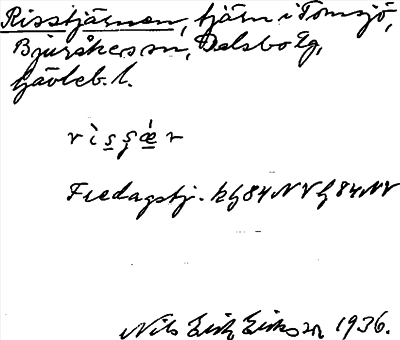 Risstjärnen, tjärn i Tomsjö,
Bjuråkers sn, Delsbo tg,
Gävleb. l.
rìs̲ʂǽ̲r
Fredagstj. kg 84 NV g 84 NV
Nils Erik Erikson 1936.